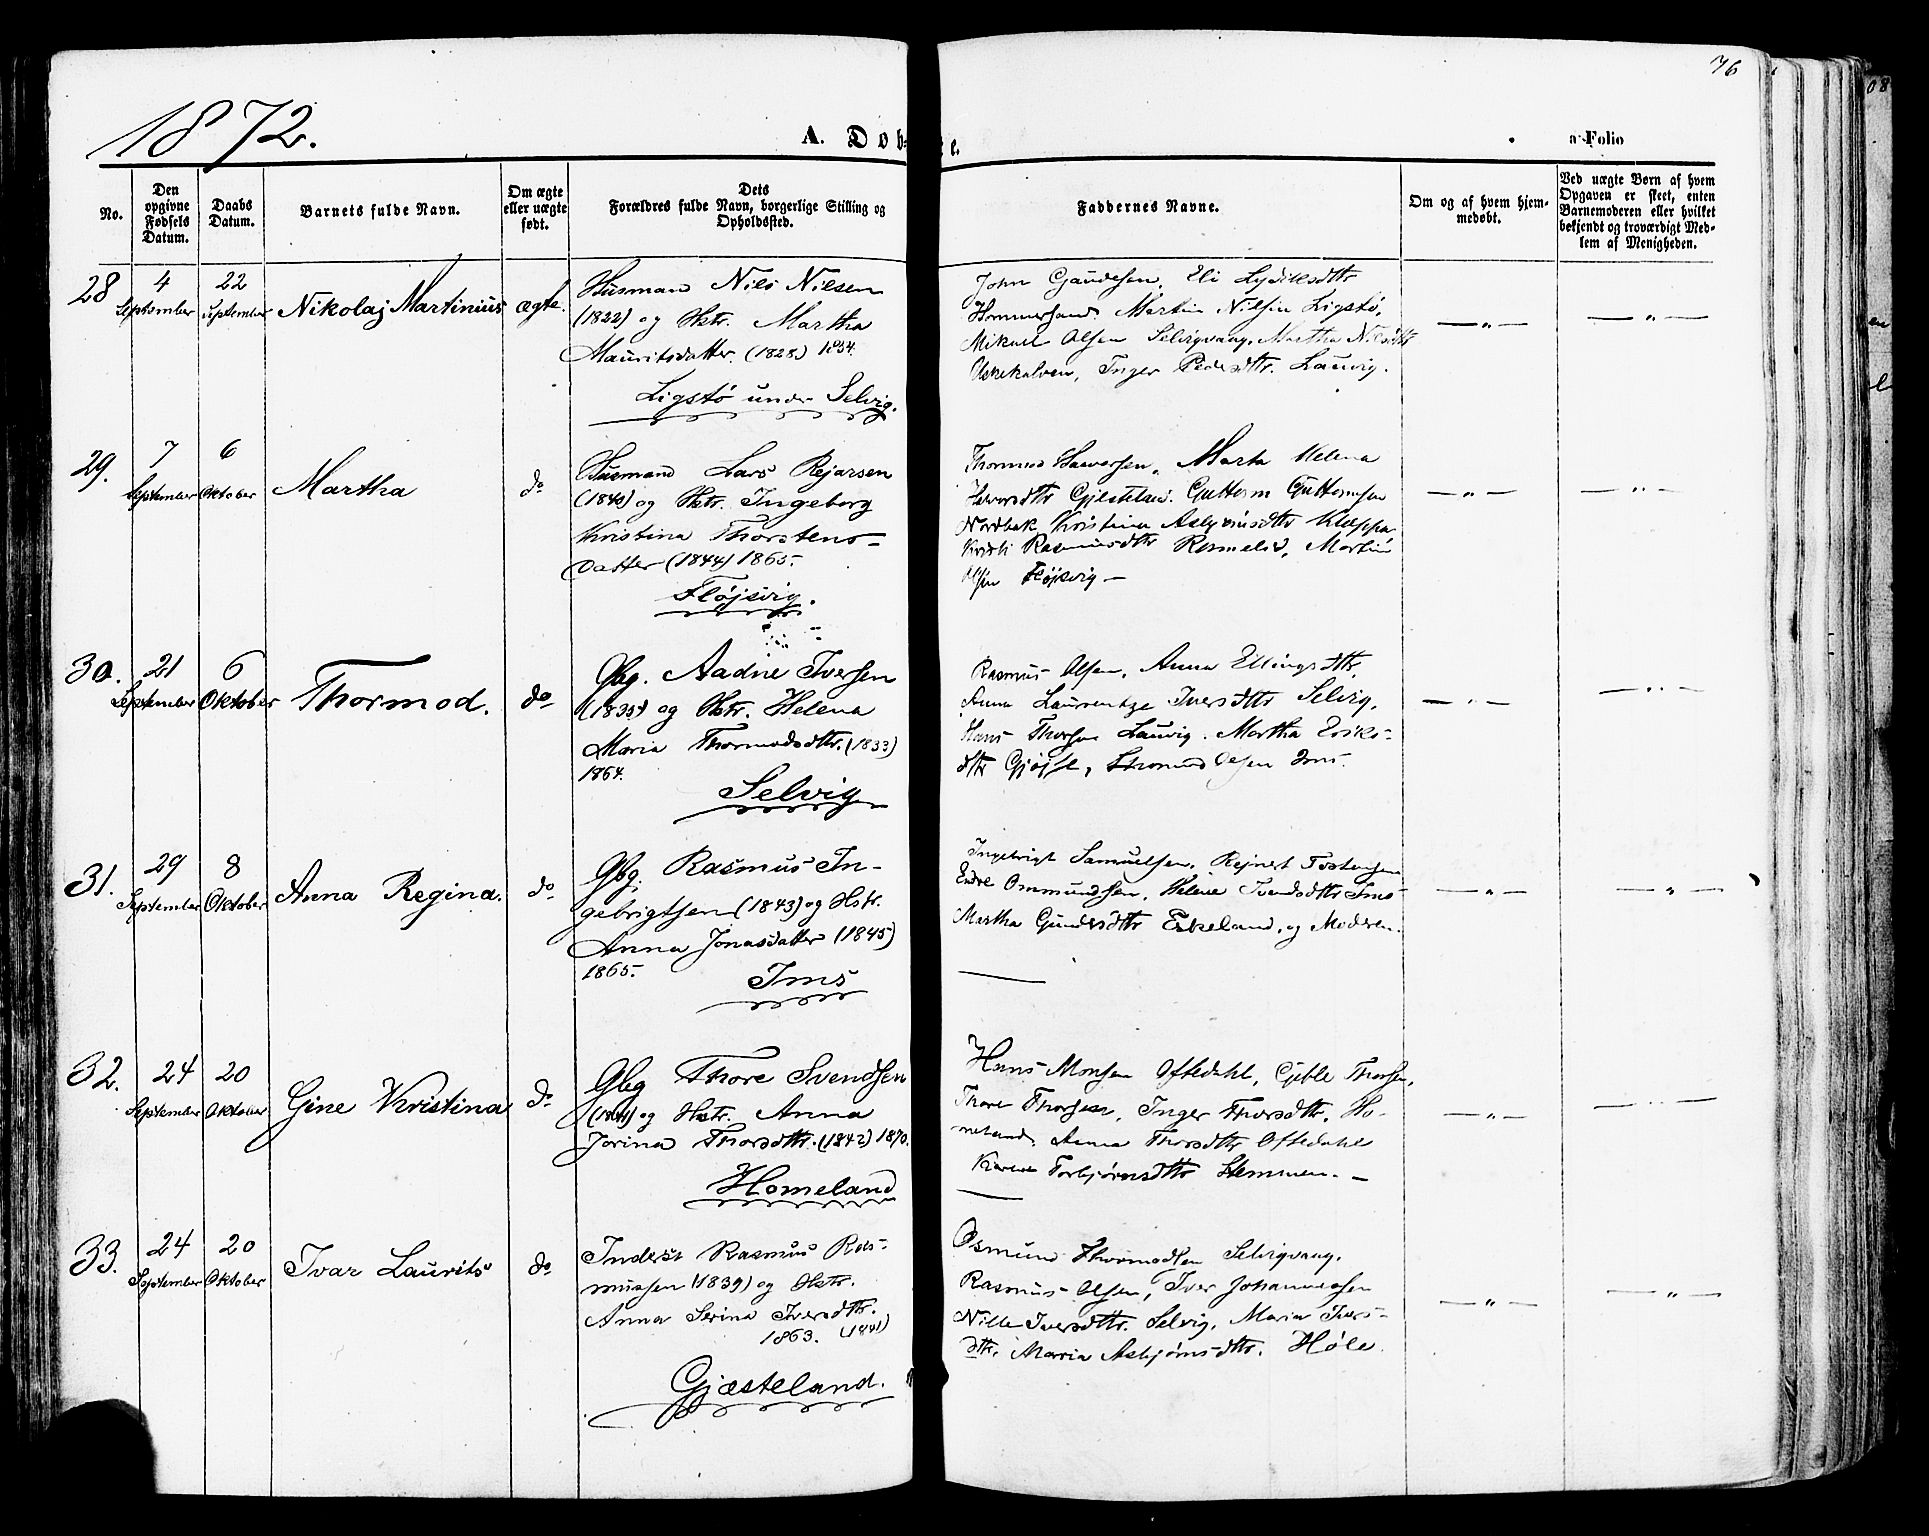 76
1872.
A. Døb-
te.
a Folio
No.
Den opgivne Fødsels Datum.
Daabs Datum.
Barnets fulde Navn.
Om ægte eller uægte født.
Dets Forældres fulde Navn, borgerlige Stilling og Opholdssted.
Faddernes Navne.
Om og af hvem hjemmedøbt.
Ved uægte Børn af hvem Opgaven er skeet, enten Barnemoderen eller hvilket bekjendt og troværdigt Medlem af Menigheden.
28
4 September
22 September
Nikolaj Martinius
ægte.
Husmand Nils Nilsen
(1822) og Hstr. Martha
Mauritsdatter. (1828) 1854.
Ligstö under Selvig.
John Gaudesen, Eli
Hommersand. Martin Nilsen Ligstö,
Mikael Olsen Selvigvaag, Martha Nilsdtr
Inger Pedersdtr. Lauvig.
29.
7 September
6 Oktober
Martha
do
Husmand Lars Rejarsen
(1840) og Hstr. Ingeborg
Kristina Thorstens-
datter (1844) 1865.
Fløjsvig.
Thormod Haaversen, Marta Helena
Haversdtr Gjesteland. Guttorm Guttormsen
Nordbek Kristina Asbjørnsdtr Kleppa
Rasmusdtr Martin
Olsen Fløjsvig —
30.
21 September
6 Oktober
Thormod.
do
Gbg. Aadne Iversen
(1835) og Hstr. Helena
Maria Thormodsdtr. (1833)
1864.
Selvig
Rasmus Olsen, Anna Ellingsdtr,
Anna Laurentze Iversdtr Selvig,
Hans Thorsen Lauvig. Martha Eriks-
dtr Gjøjse, Thormod Olsen Ims.
31.
29 September
8 Oktober
Anna Regina.
do
Gbg. Rasmus In-
gebrigtsen (1843) og Hstr.
Anna Jonasdatter (1845)
1865.
Ims
Ingebrigt Samuelsen, Rejnert Tostensen
Endre Ommundsen, Helene Svendsdtr Ims
Martha Gundersdtr Eskeland, og Moderen.
32.
24 September
20 Oktober
Gine Kristina
do
Gbg Thore Svendsen
(1844) og Hstr. Anna
Jorina Thorsdtr. (1842) 1870.
Homeland
Hans Monsen Oftedahl, Gjeble Thorsen,
Thore Thorsen, Inger Thorsdtr. Ho-
meland. Anna Thorsdtr Oftedahl
Torbjørnsdtr Hemmen. —
33.
24 September
20 Oktober
Ivar Laurits
do
Inderst Rasmus Ras-
mussen (1839) og Hstr.
Anna Serina Iversdtr.
1863. (1841)
Gjæsteland.
Osmund Thormodsen Selvigvaag.
Rasmus Olsen, Iver Johannessen
Nille Iversdtr. Selvig, Maria Ivers-
dtr. Marria Asbjørnsdtr. Høle.